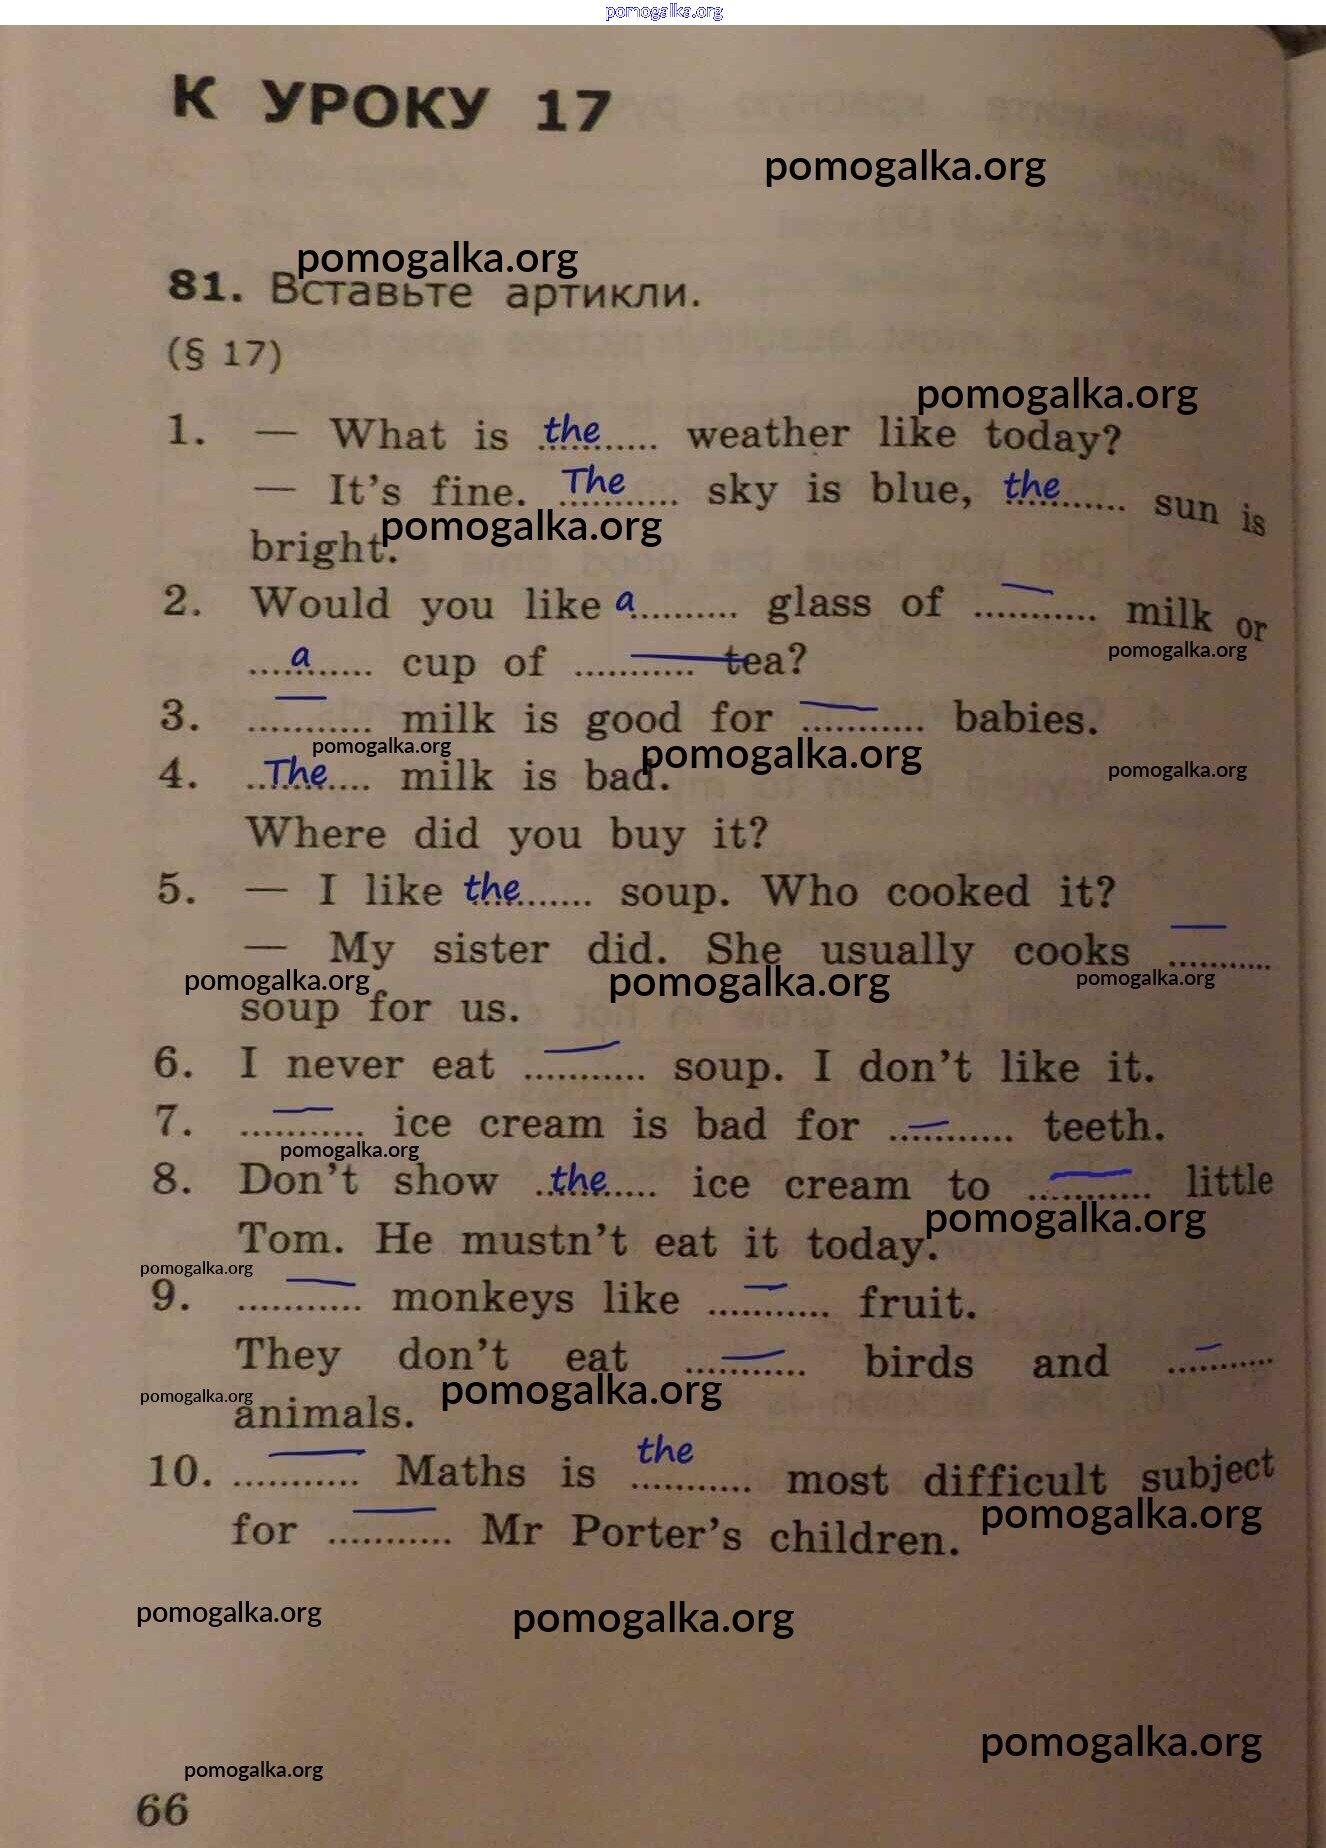 pomogalka.org
К УРОКУ 17
pomogalka.org
pomogalka.org
81. Вставьте артикли.
(§ 17)
pomogalka.org
1. — What is the........... weather like today?
— It's fine. The........... sky is blue, the........... sun is
pomogalka.org
bright.
2. Would you like a.......... glass of ........... milk or
pomogalka.org
....a....... cup of ........... tea?
3. ........... milk is good for ........... babies.
pomogalka.org pomogalka.org pomogalka.org
4. ..The..... milk is bad.
Where did you buy it?
5. — I like the........ soup. Who cooked it?
— My sister did. She usually cooks ...........
pomogalka.org pomogalka.org pomogalka.org
soup for us.
6. I never eat ........... soup. I don't like it.
7. ........... ice cream is bad for ........... teeth.
pomogalka.org
8. Don't show ..the...... ice cream to ........... little
pomogalka.org
Tom. He mustn't eat it today.
pomogalka.org
9. ........... monkeys like ........... fruit.
They don't eat ........... birds and ...........
pomogalka.org pomogalka.org
animals.
10. ........... Maths is the........... most difficult subject
pomogalka.org
for ........... Mr Porter's children.
pomogalka.org pomogalka.org
pomogalka.org
pomogalka.org
66